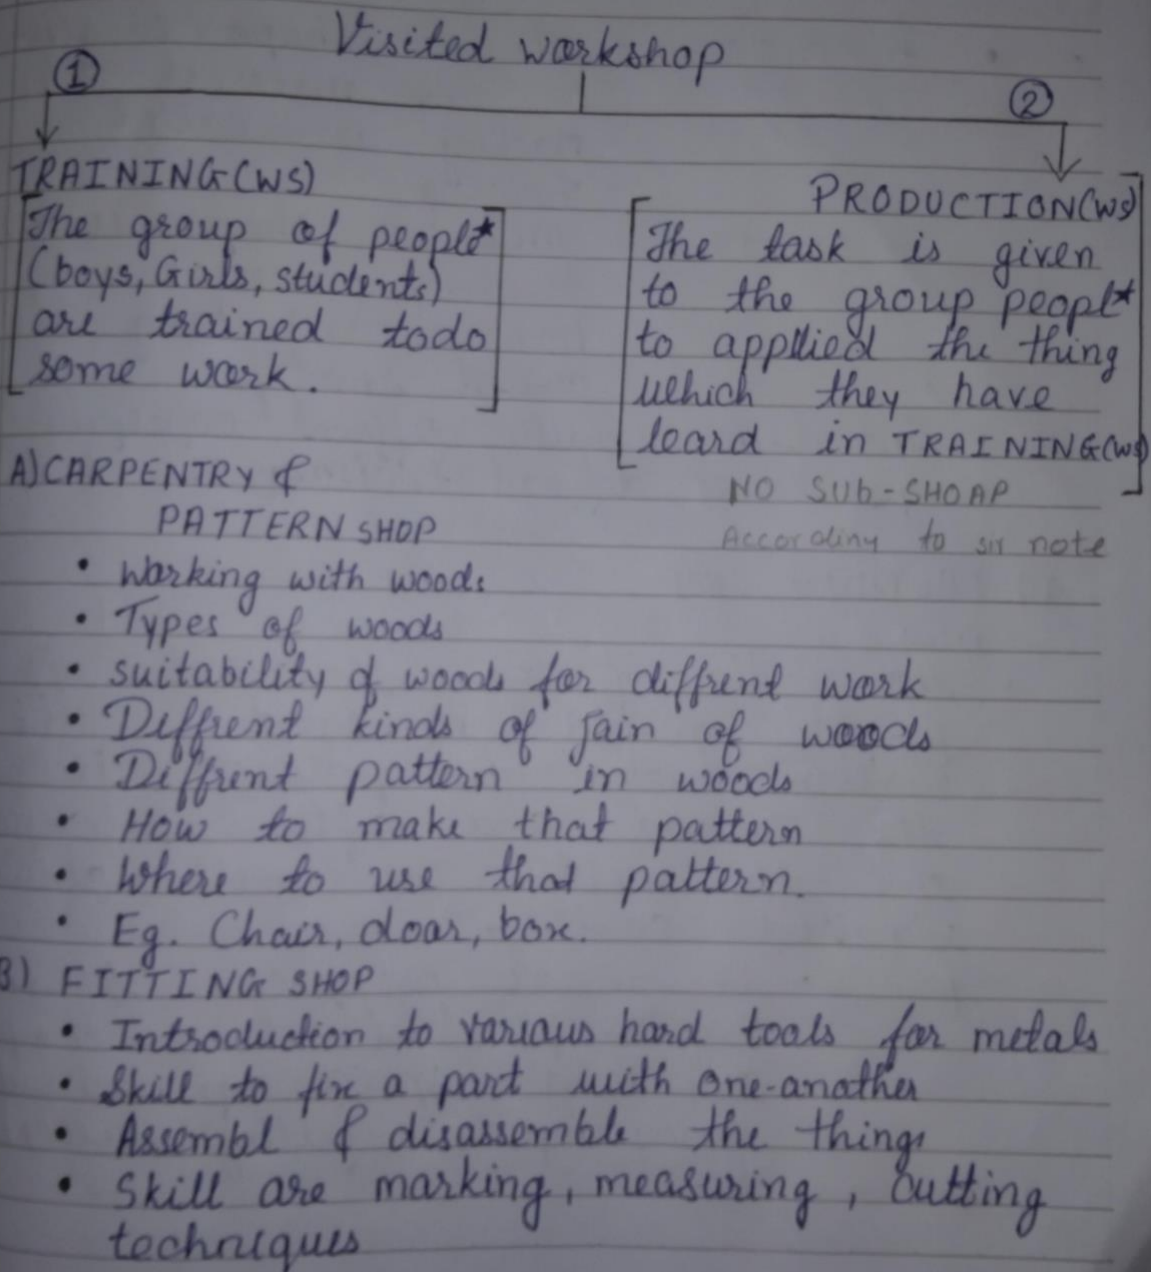 Visited workshop
①
②
TRAINING(WS)
The group of people*
(boys, Girls, students)
are trained todo
some work.
PRODUCTION(WS)
The task is given
to the group peopl*
to appllied the thing
which they have
leard in TRAINING(WS)
NO SUb-SHOAP
Accordiny to sir note
A) CARPENTRY &
PATTERN SHOP
• Working with woods
• Types of woods
• suitability of woods for diffrent work
• Diffrent kinds of jain of woods
• Diffrent pattern in woods
• How to make that pattern
• Where to use that pattern.
• Eg. Chair, doar, box.
B) FITTING SHOP
• Introduction to various hard tools for metals
• Skill to fix a part with one-another
• Assembl & disassemble the things
• Skill are marking, measuring, Cutting
techniques